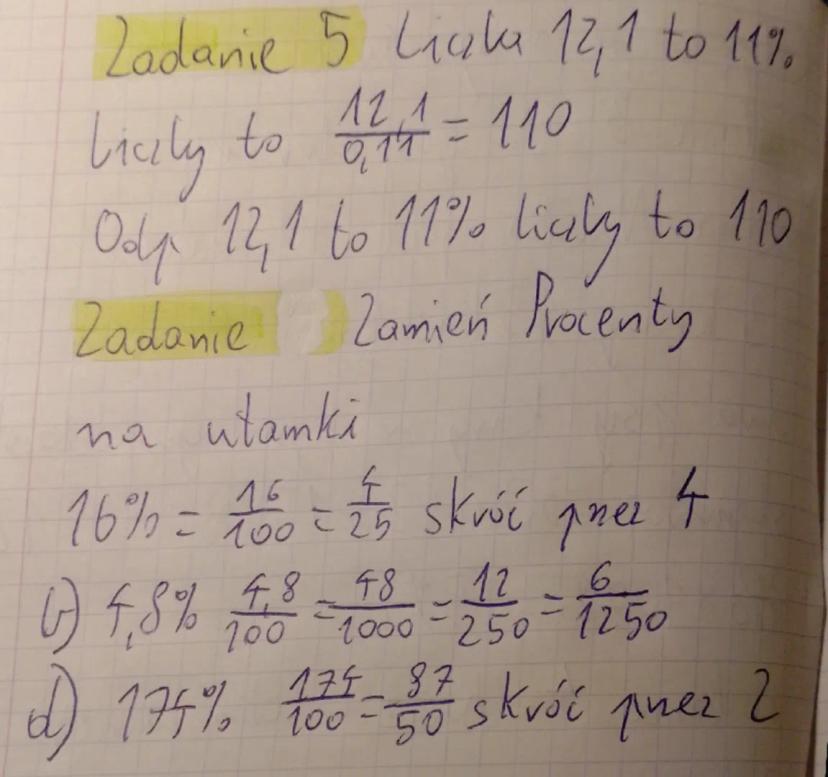 Zadanie 5 Liczba 12,1 to 11%
liczby to 12,1/0,11 = 110
Odp 12,1 to 11% liczby to 110
Zadanie Zamień Procenty
na ułamki
16% = 16/100 = 4/25 skróć przez 4
b) 4,8% 4,8/100 = 48/1000 = 12/250 = 6/1250
d) 174% 174/100 = 87/50 skróć przez 2